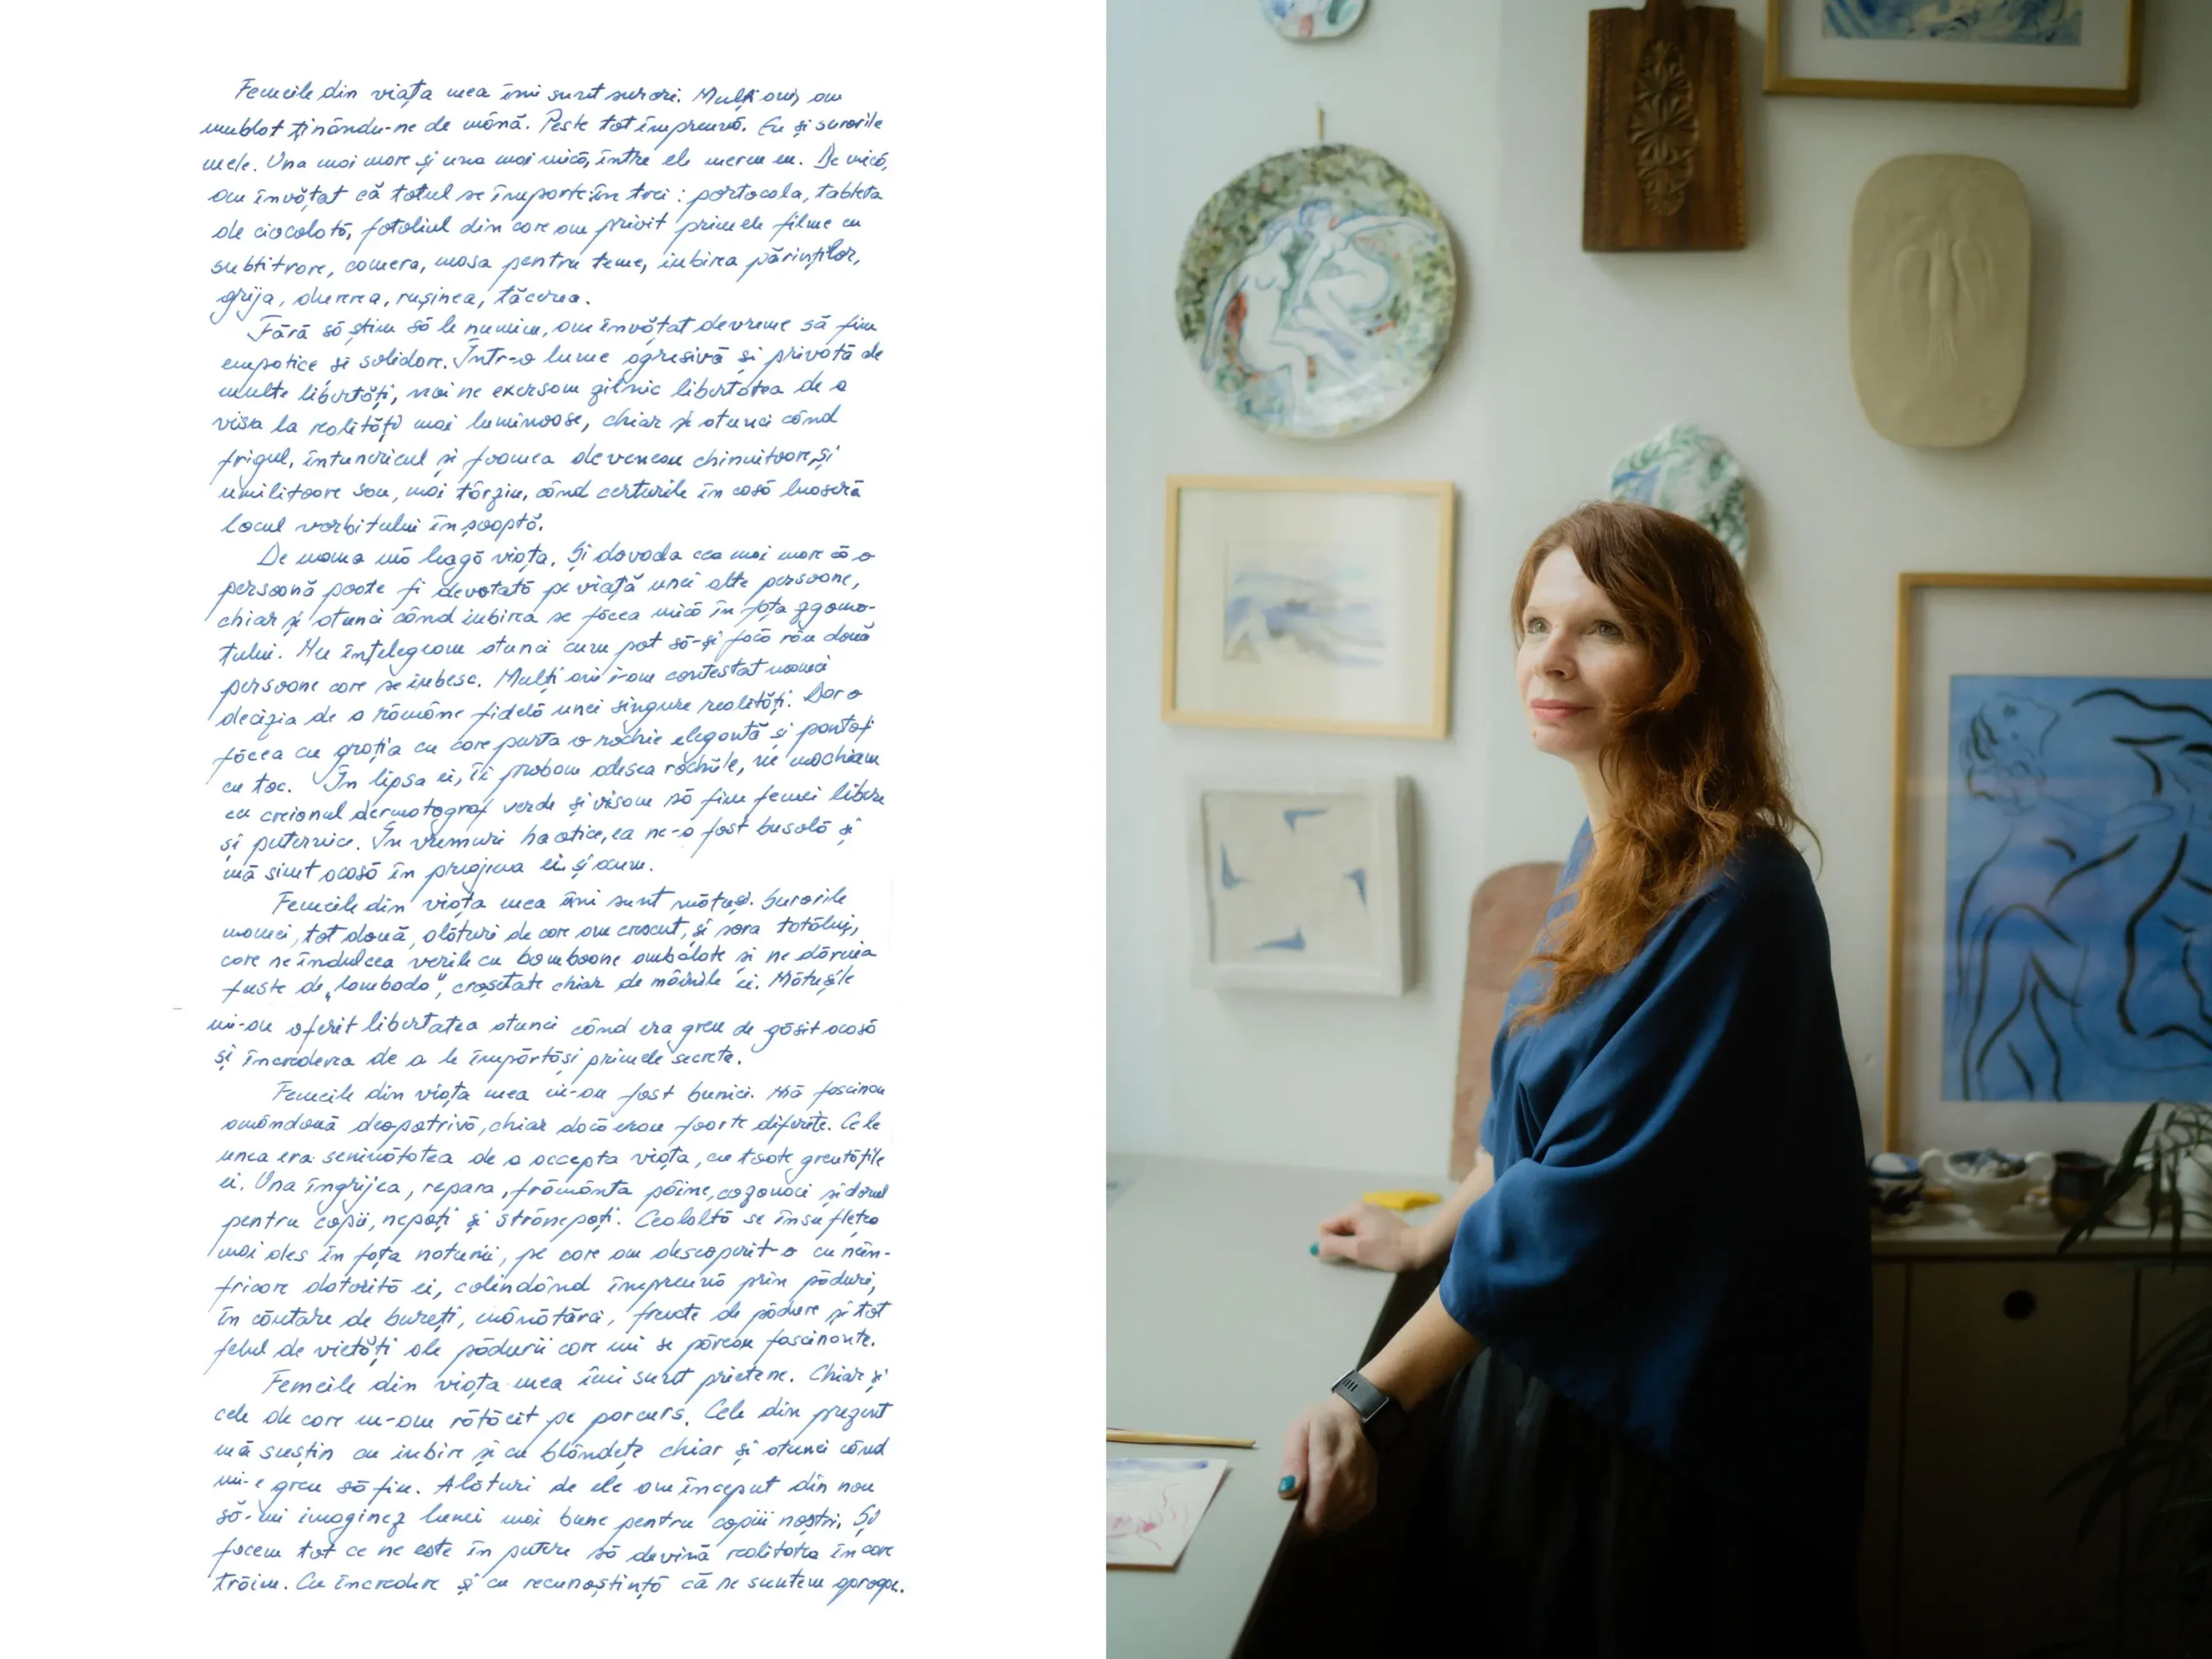 Femeile din viața mea îmi sunt surori. Mulți ani am
umblat ținându-ne de mână. Peste tot împreună. Eu și surorile
mele. Una mai mare și una mai mică, între ele mereu eu. De mică,
am învățat că totul se împarte în trei: portocala, tableta
de ciocolată, fotoliul din care am privit primele filme cu
subtitrare, camera, masa pentru teme, iubirea părinților,
grija, durerea, rușinea, tăcerea.
Fără să știm să le numim, am învățat devreme să fim
empatice și solidare. Într-o lume agresivă și privată de
multe libertăți, noi ne exersam zilnic libertatea de a
visa la realități mai luminoase, chiar și atunci când
frigul, întunericul și foamea deveneau chinuitoare și
umilitoare sau, mai târziu, când certurile în casă luaseră
locul vorbitului în șoaptă.
De mama mă leagă viața. Și dovada cea mai mare că o
persoană poate fi devotată pe viață unei alte persoane,
chiar și atunci când iubirea se făcea mică în fața zgomo-
tului. Nu înțelegeam atunci cum pot să-și facă rău două
persoane care se iubesc. Mulți ani i-am contestat mamei
decizia de a rămâne fidelă unei singure realități. Dar o
făcea cu grația cu care purta o rochie elegantă și pantofi
cu toc. În lipsa ei, îi probam adesea rochiile, ne machiam
cu creionul dermatograf verde și visam să fim femei libere
și puternice. În vremuri haotice, ea ne-a fost busolă și
mă simt acasă în preajma ei și acum.
Femeile din viața mea îmi sunt mătuși. Surorile
mamei, tot două, alături de care am crescut, și sora tatălui,
care ne îndulcea verile cu bomboane ambalate și ne dăruia
fuste de „lambada", croșetate chiar de mâinile ei. Mătușile
mi-au oferit libertatea atunci când era greu de găsit acasă
și încrederea de a le împărtăși primele secrete.
Femeile din viața mea mi-au fost bunici. Mă fascinau
amândouă deopotrivă, chiar dacă erau foarte diferite. Cele
unea era seninătatea de a accepta viața, cu toate greutățile
ei. Una îngrijea, repara, frământa pâine, cozonaci și dorul
pentru copii, nepoți și strănepoți. Cealaltă se însuflețea
mai ales în fața naturii, pe care am descoperit-o cu neîn-
fricare datorită ei, colindând împreună prin păduri,
în căutare de bureți, mânătărci, fructe de pădure și tot
felul de vietăți ale pădurii care mi se păreau fascinante.
Femeile din viața mea îmi sunt prietene. Chiar și
cele de care m-am rătăcit pe parcurs. Cele din prezent
mă susțin cu iubire și cu blândețe chiar și atunci când
mi-e greu să fiu. Alături de ele am început din nou
să-mi imaginez lumi mai bune pentru copiii noștri. Să
facem tot ce ne este în putere să devină realitatea în care
trăim. Cu încredere și cu recunoștință că ne suntem aproape.